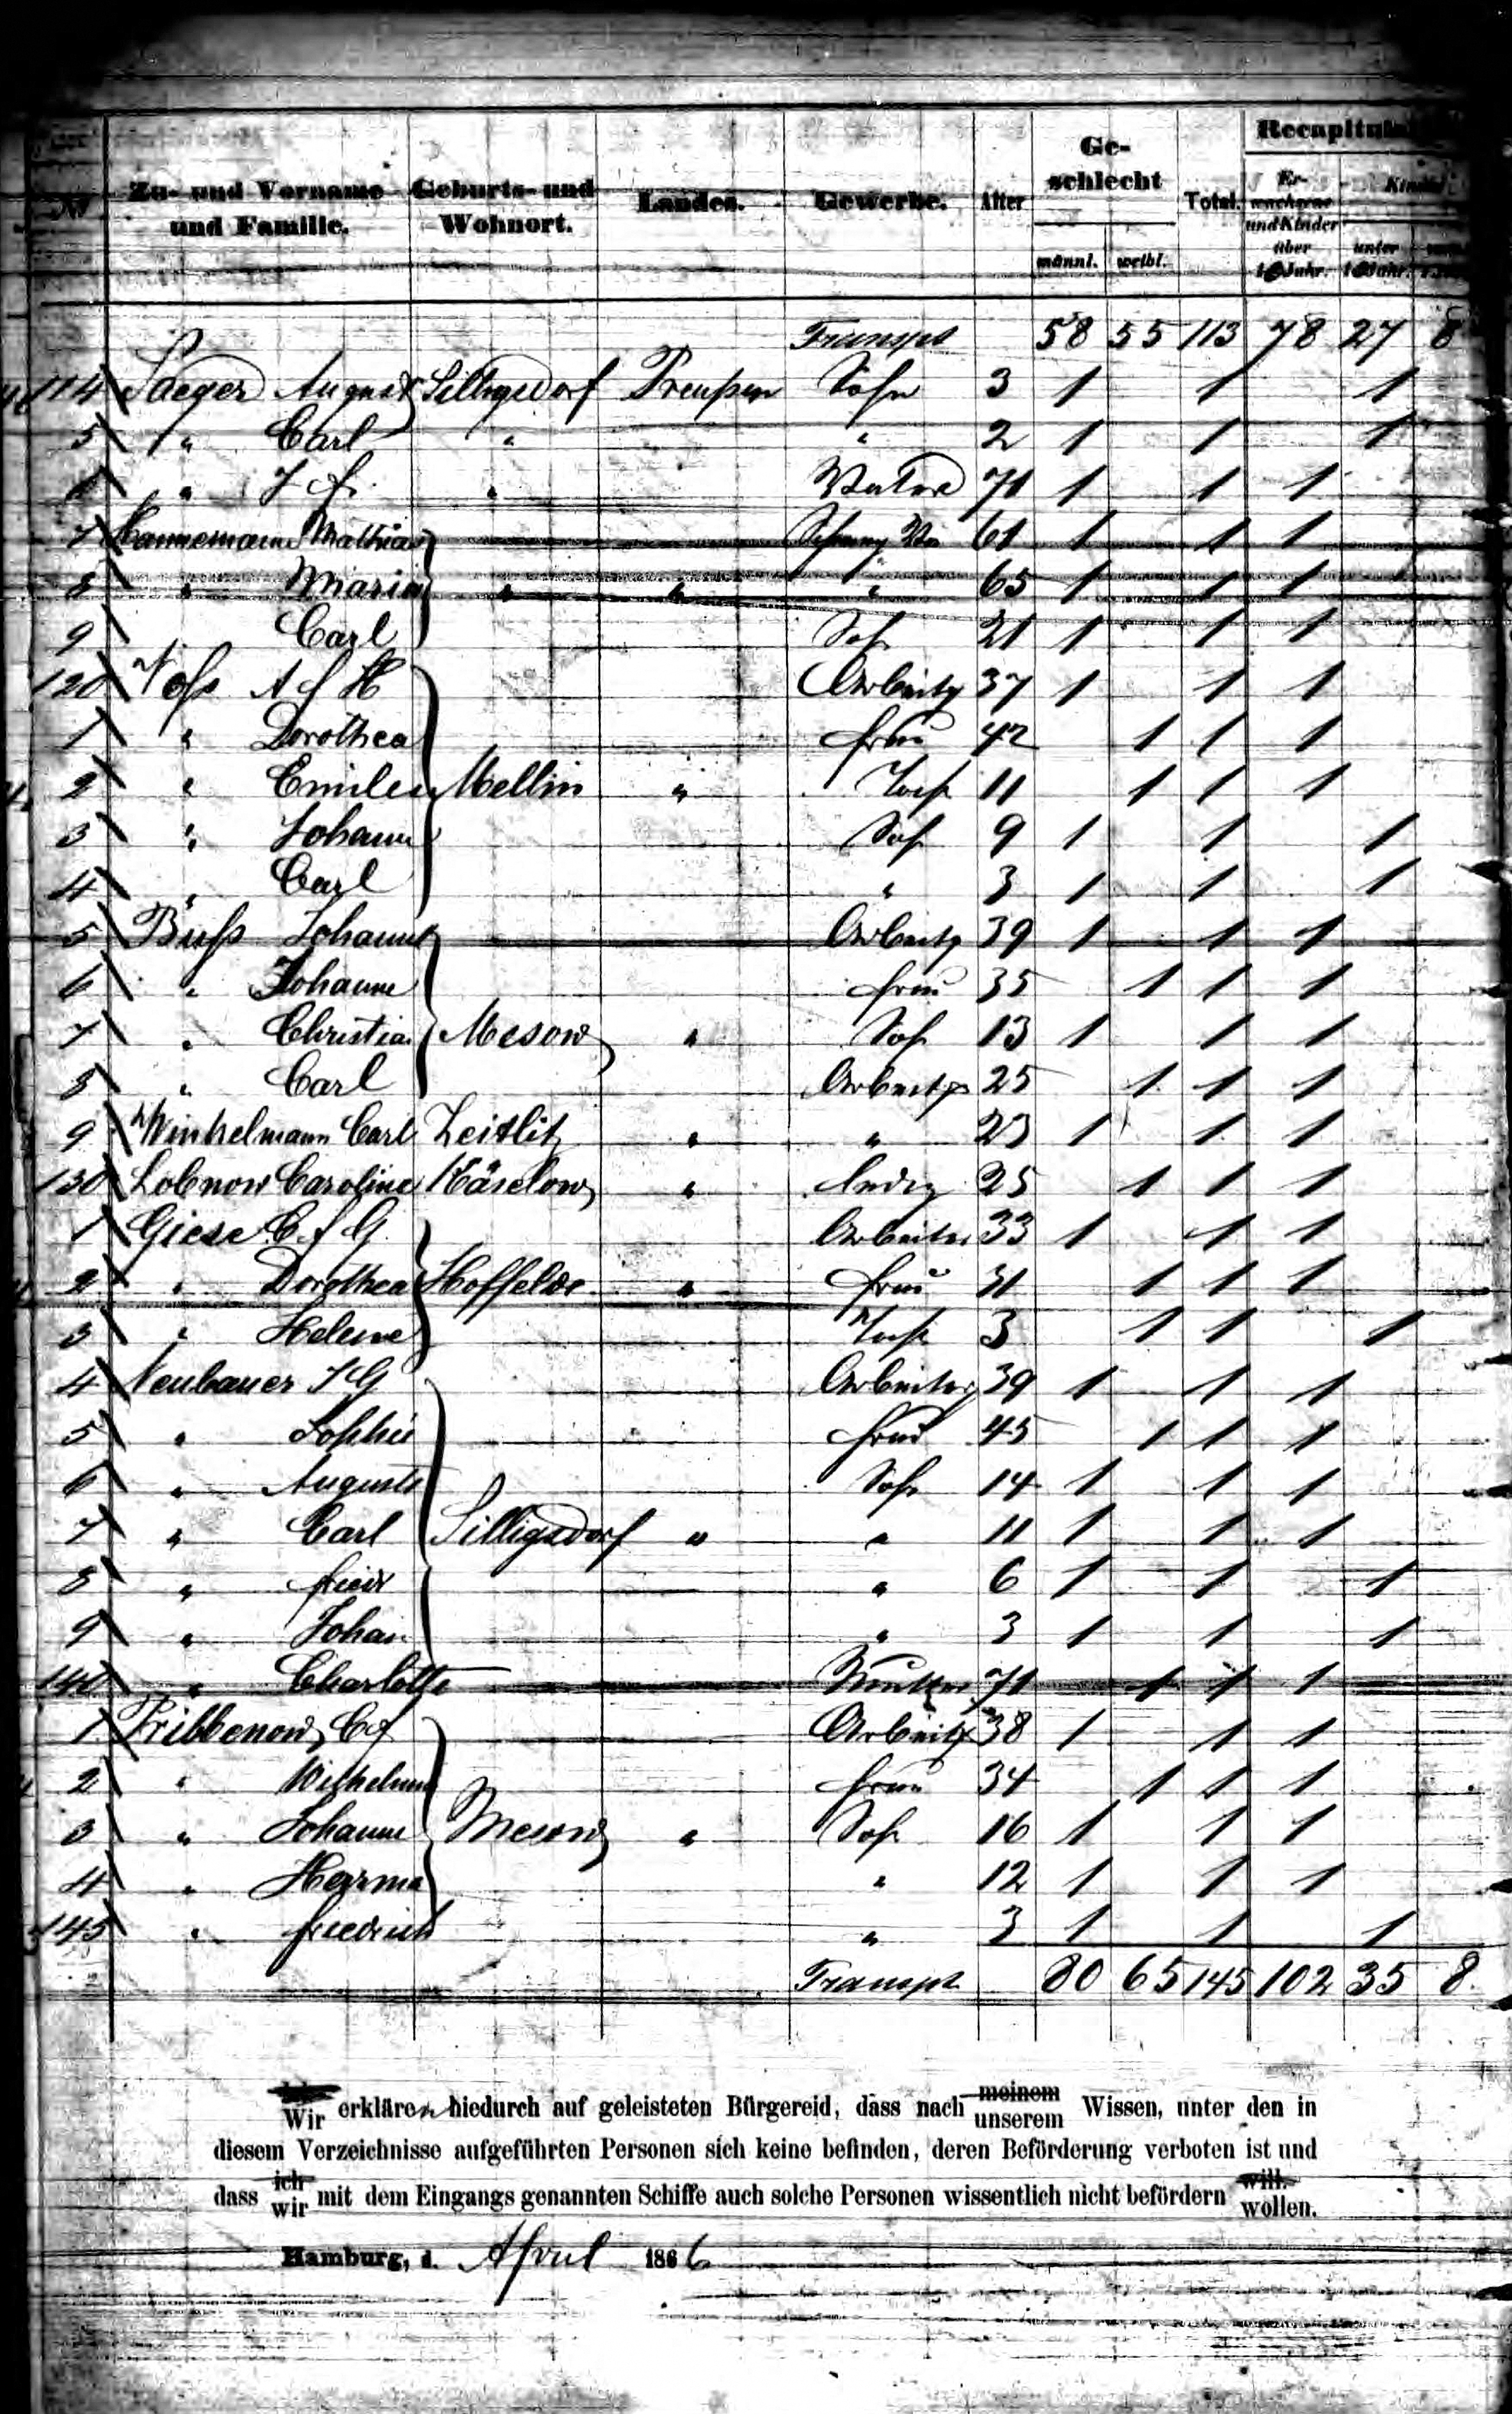 Zu- und Vorname und Familie. Geburts- und Wohnort. Landes. Gewerbe. Alter Ge-schlecht männl. weibl. Total. Er-wachsene und Kinder über 10 Jahr. unter 10 Jahr.
Transpt 58 55 113 78 27 8
114 Saeger August Silligsdorf Preußen Sohn 3 1 1 1
5 " Carl " " 2 1 1 1
6 " J f. " Vater 71 1 1 1
7 Hannemann Mathias 61 1 1 1
8 " Maria " " " 65 1 1 1
9 Carl Soh 21 1 1 1
120 Voß A f H Arbeiter 37 1 1 1
1 " Dorothea frau 42 1 1 1
2 " Emilie Mellin " Toch 11 1 1 1
3 " Johann Soh 9 1 1 1
4 " Carl " 3 1 1 1
5 Buß Johann Arbeiter 39 1 1 1
6 " Johanne frau 35 1 1 1
7 " Christian Mesow " Soh 13 1 1 1
8 " Carl Arbeiter 25 1 1 1
9 Winkelmann Carl Zeitlitz " " 23 1 1 1
130 Lobnow Caroline Käselow " ledig 25 1 1 1
1 Giese C. f G. Arbeiter 33 1 1 1
2 " Dorothea Hoffelde " frau 31 1 1 1
3 " Helene Toch 3 1 1 1
4 Neubauer J G Arbeiter 39 1 1 1
5 " Sophie frau 45 1 1 1
6 " August Soh 14 1 1 1
7 " Carl Silligsdorf " " 11 1 1 1
8 " friedr " 6 1 1 1
9 " Johan " 3 1 1 1
140 " Charlotte Mutter 71 1 1 1
1 Pribbenow C f Arbeiter 38 1 1 1
2 " Wilhelmine frau 34 1 1 1
3 " Johann Mesow " Soh 16 1 1 1
4 " Herrma " 12 1 1 1
145 " friedrich " 3 1 1 1
Transpt 80 65 145 102 35 8
Wir erklären hiedurch auf geleisteten Bürgereid, dass nach meinem unserem Wissen, unter den in
diesem Verzeichnisse aufgeführten Personen sich keine befinden, deren Beförderung verboten ist und
dass ich wir mit dem Eingangs genannten Schiffe auch solche Personen wissentlich nicht befördern will. wollen.
Hamburg, d. April 1866